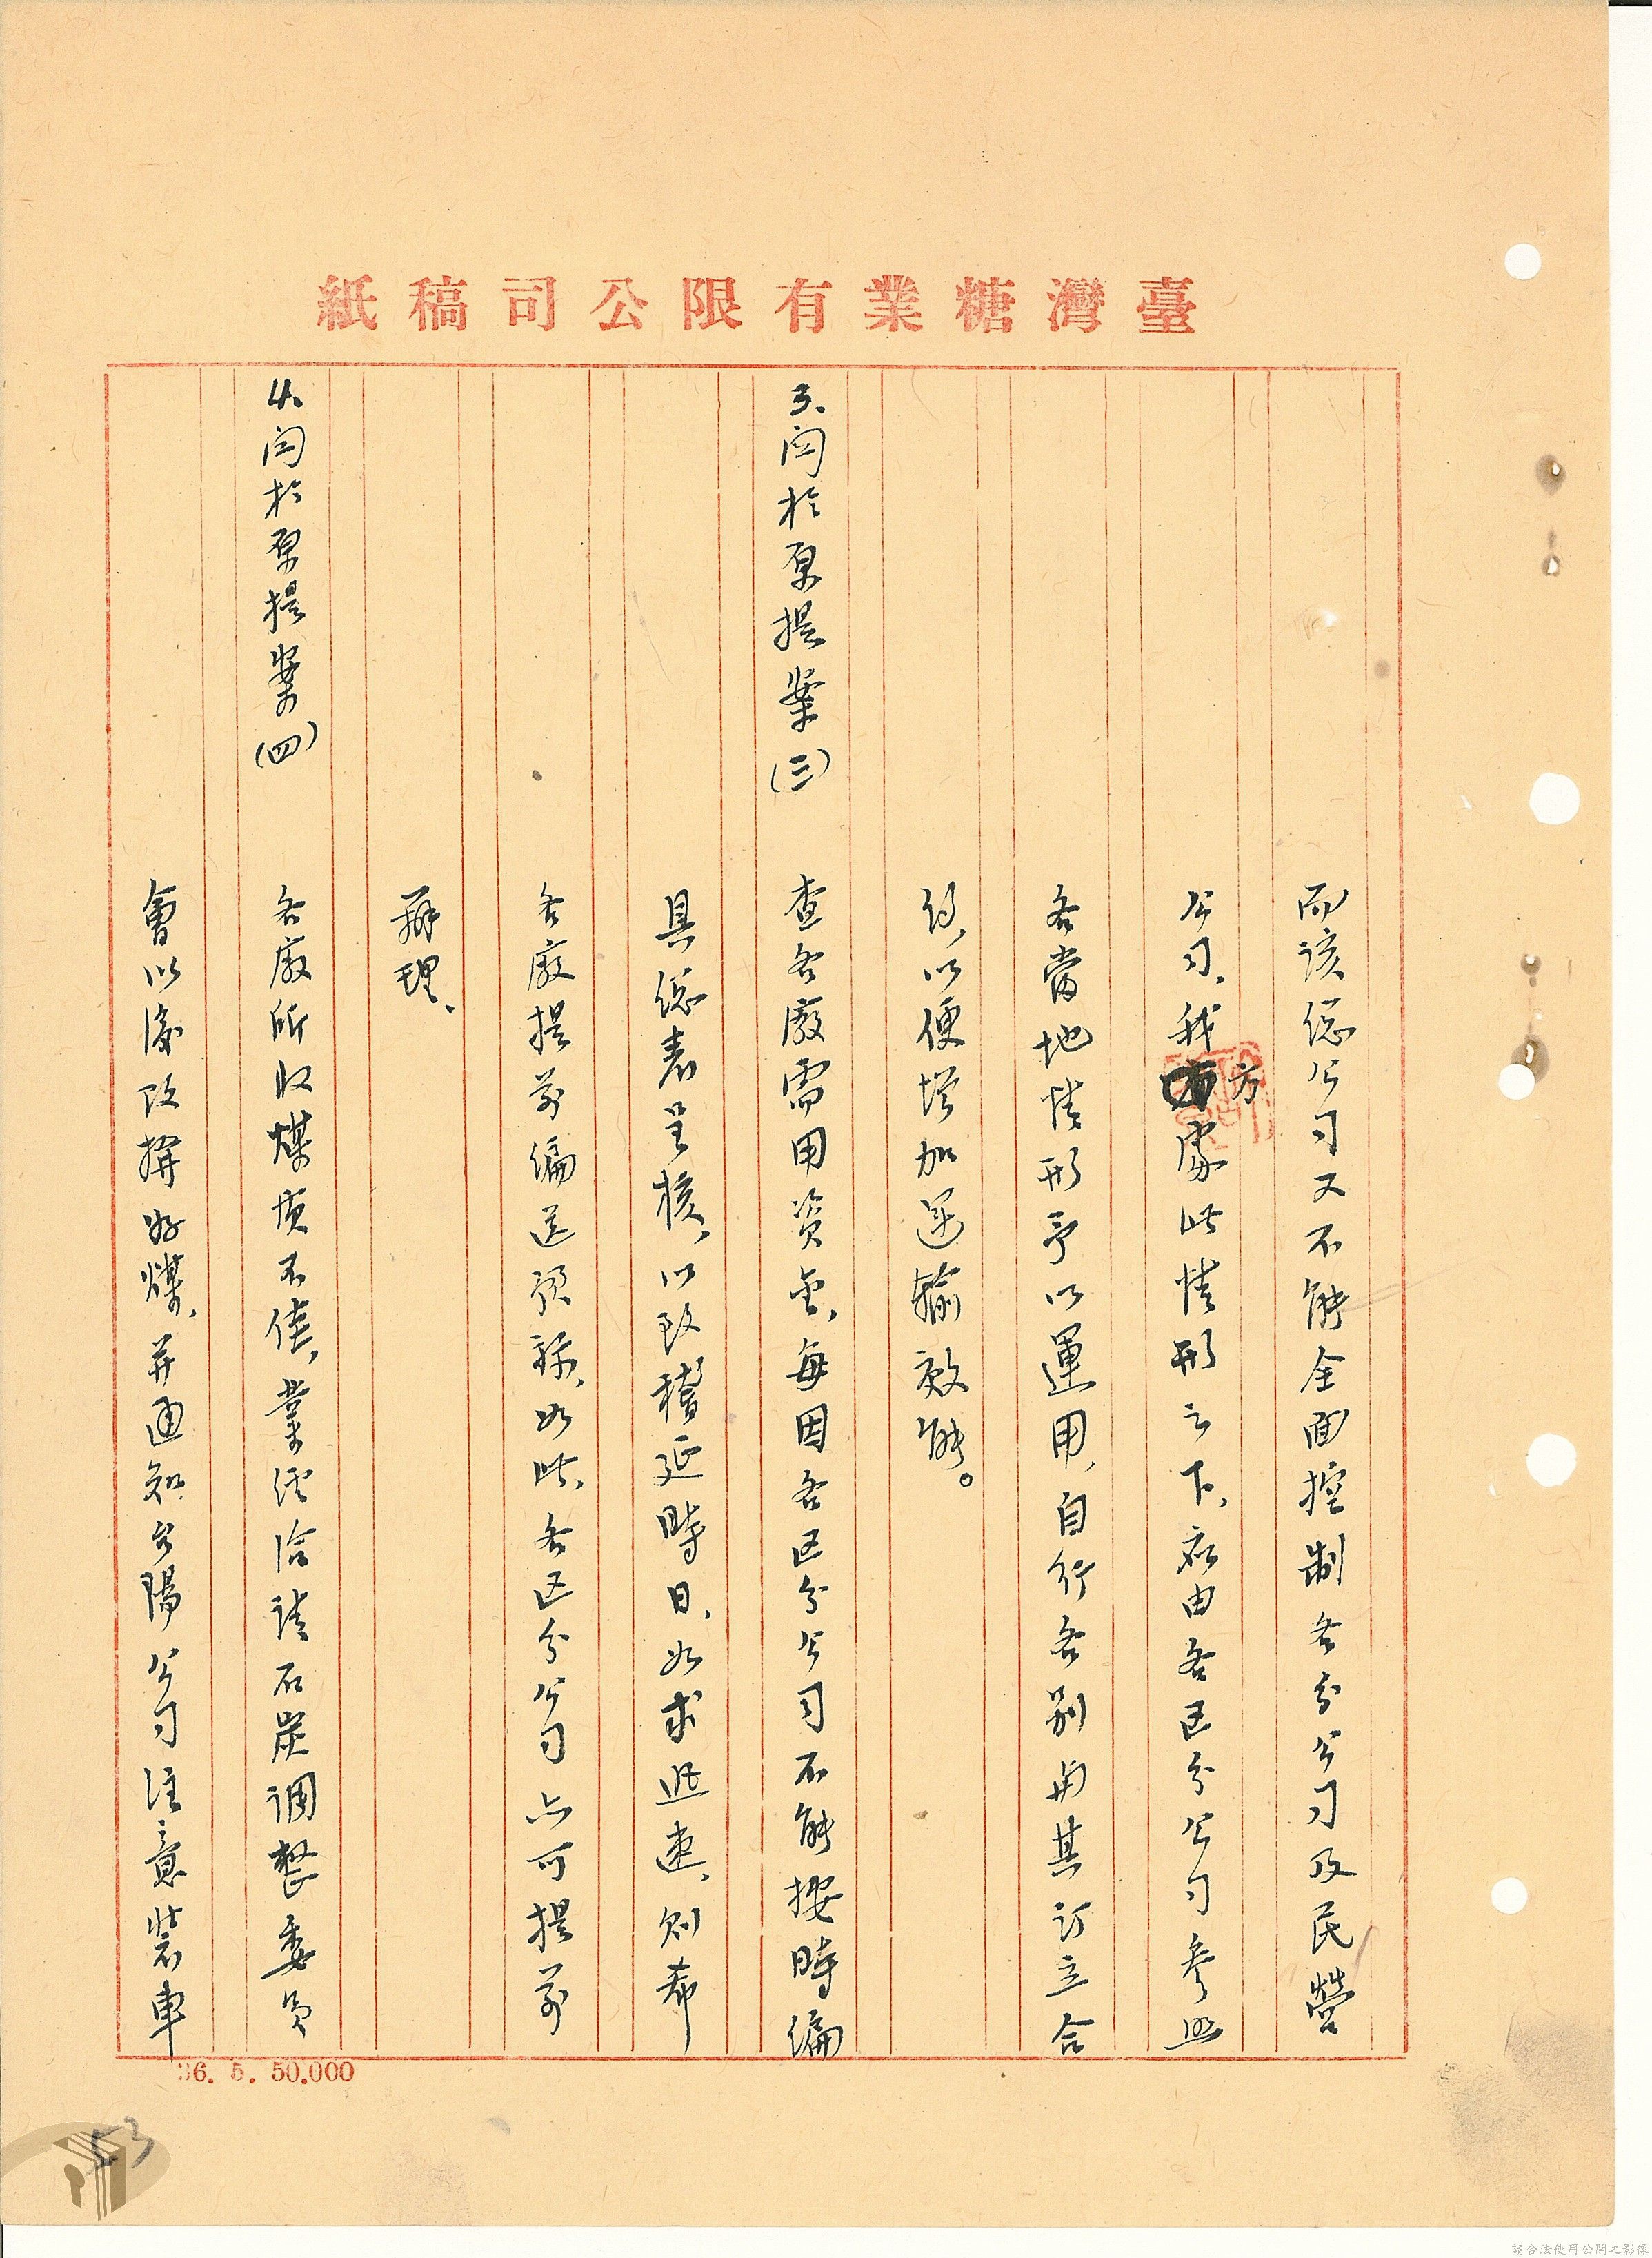 臺灣糖業有限公司稿紙
而該總公司又不能全面控制各分公司及民營
公司、我方處此情形之下、應由各区分公司參照
各當地情形予以運用、自行各別與其訂立合
約、以便增加運輸效能。
3、関於原提案(三)
查各廠需用資金、每因各区分公司不能按時編
具總表呈核、以致稽延時日、如求迅速、則希
各廠提前編送預算、如此、各区分公司亦可提前
辦理、
4、関於原提案(四)
各廠所收煤质不佳、業經洽請石炭調整委員
會以後改撥好煤、并通知台陽公司注意裝車
36. 5. 50.000
53
請合法使用公開之影像